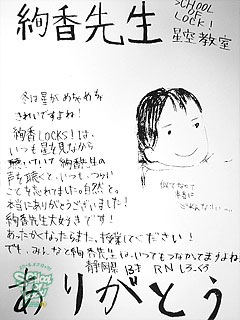 絢香先生
SCHOOL
OF
LOCK!
星空教室
冬は星がめちゃめちゃ
きれいですよね!
絢香LOCKS!は、
いつも星を見ながら
聴いていて絢香先生の
声を聴くと、いつも、つらい
ことを忘れました。自然と。
本当にありがとうございました!
絢香先生大好きです!
あったかくなったらまた、授業してください!
でも、みんなと絢香先生は、いつでもつながってますよね
静岡県 13才 RN しろくろ
似てなくて
本当に
ごめんなさい…
ありがとう